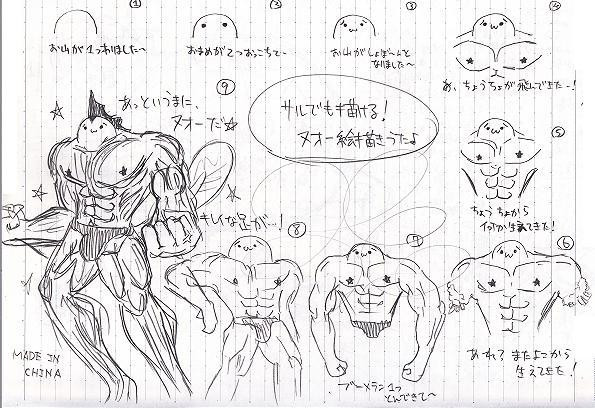 サルでも描ける!
ヌオー絵描きうた♪
①
お山が1つありました〜
②
おまめが2つおっこちて〜
③
お山がしょぼーんと
なりました〜
④
あ、ちょうちょが飛んできたー!
⑤
ちょうちょから
何か生えてきた!
⑥
あれ?またよこから
生えてきた!
⑦
ブーメラン1つ
とんできて〜
⑧
キレイな足が…!
⑨
あっというまに、
ヌオーだ☆
MADE IN
CHINA